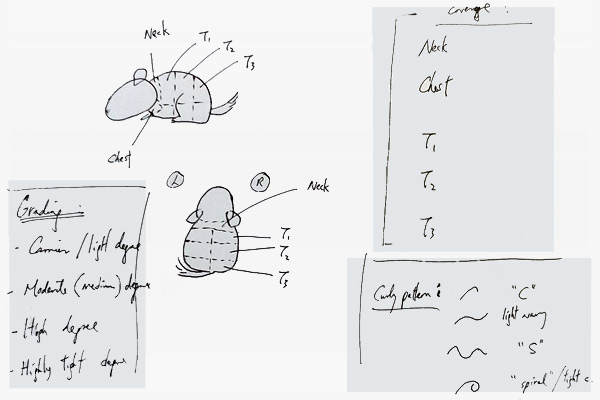 Neck
T1
T2
T3
Chest
L
R
Neck
T1
T2
T3
Grading :
- Carrier / light degree
- Moderate (medium) degree
- High degree
- Highly tight degree
coverage :
Neck
Chest
T1
T2
T3
Curly pattern :
"C"
light wavy
"S"
"spiral" / tight c.